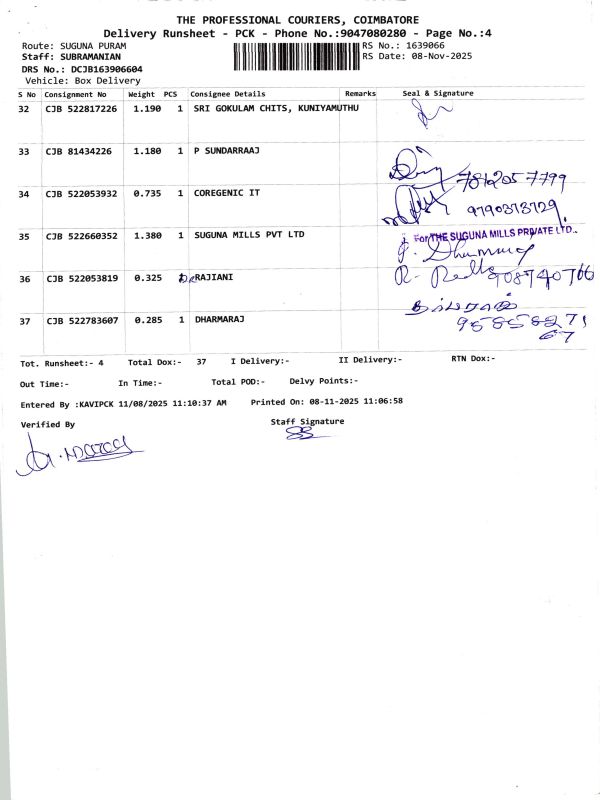 THE PROFESSIONAL COURIERS, COIMBATORE
Delivery Runsheet - PCK - Phone No.:9047080280 - Page No.:4
Route: SUGUNA PURAM RS No.: 1639066
Staff: SUBRAMANIAN RS Date: 08-Nov-2025
DRS No.: DCJB163906604
Vehicle: Box Delivery
S No Consignment No Weight PCS Consignee Details Remarks Seal & Signature
32 CJB 522817226 1.190 1 SRI GOKULAM CHITS, KUNIYAMUTHU
33 CJB 81434226 1.180 1 P SUNDARRAAJ
7812057799
34 CJB 522053932 0.735 1 COREGENIC IT
9790373729.
35 CJB 522660352 1.380 1 SUGUNA MILLS PVT LTD For THE SUGUNA MILLS PRIVATE LTD.,
36 CJB 522053819 0.325 RAJIANI
37 CJB 522783607 0.285 1 DHARMARAJ
Tot. Runsheet:- 4 Total Dox:- 37 I Delivery:- II Delivery:- RTN Dox:-
Out Time:- In Time:- Total POD:- Delvy Points:-
Entered By :KAVIPCK 11/08/2025 11:10:37 AM Printed On: 08-11-2025 11:06:58
Verified By Staff Signature